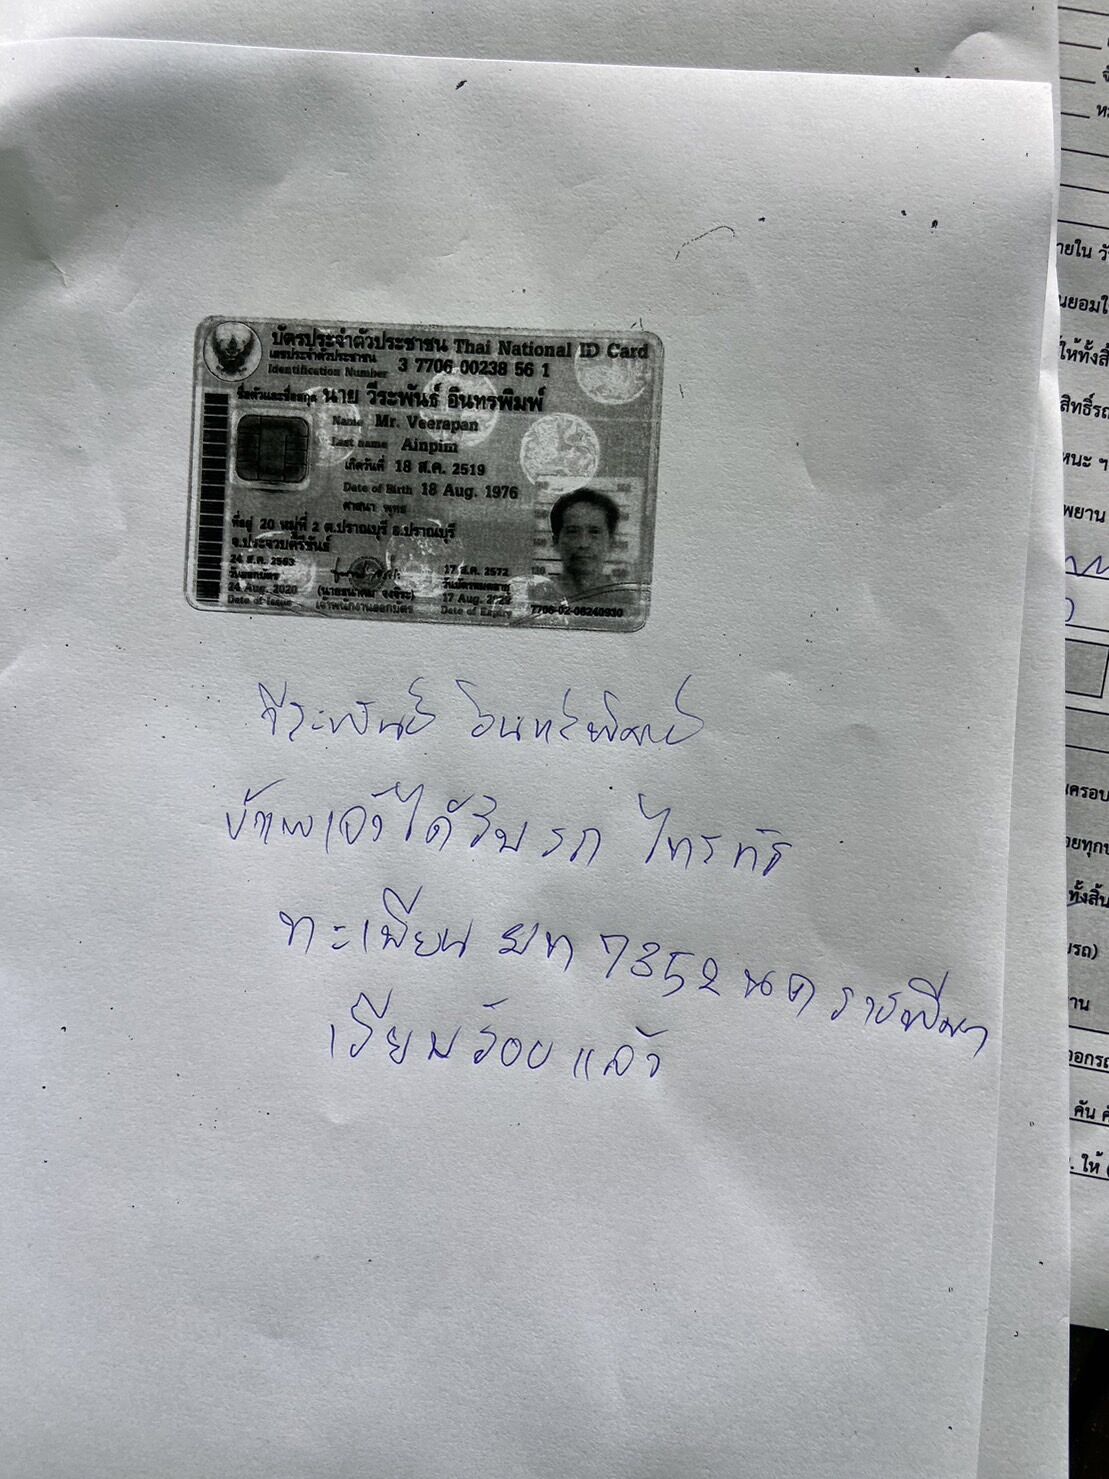 บัตรประจำตัวประชาชน Thai National ID Card
เลขประจำตัวประชาชน
Identification Number 3 7706 00238 56 1
ชื่อตัวและชื่อสกุล นาย วีระพันธ์ อินทรพิมพ์
Name Mr. Veerapan
Last name Ainpim
เกิดวันที่ 18 ส.ค. 2519
Date of Birth 18 Aug. 1976
ศาสนา พุทธ
ที่อยู่ 20 หมู่ที่ 2 ต.ปราณบุรี อ.ปราณบุรี
จ.ประจวบคีรีขันธ์
24 ส.ค. 2563
วันออกบัตร
24 Aug. 2020
Date of Issue
เจ้าพนักงานออกบัตร
17 ส.ค. 2572
วันบัตรหมดอายุ
17 Aug. 2029
Date of Expiry
7706-02-08240930
วีระพันธ์ อินทรพิมพ์
ข้าพเจ้าได้รับรถ ไทรทัน
ทะเบียน ยท 7352 นครราชสีมา
เรียบร้อยแล้ว
ายใน วั
ยินยอมใ
ให้ทั้งสิ้
สิทธิ์รถ
พยาน
ครอบ
ทั้งสิ้น
รถ)
าน
ออกรถ
คัน
ให้